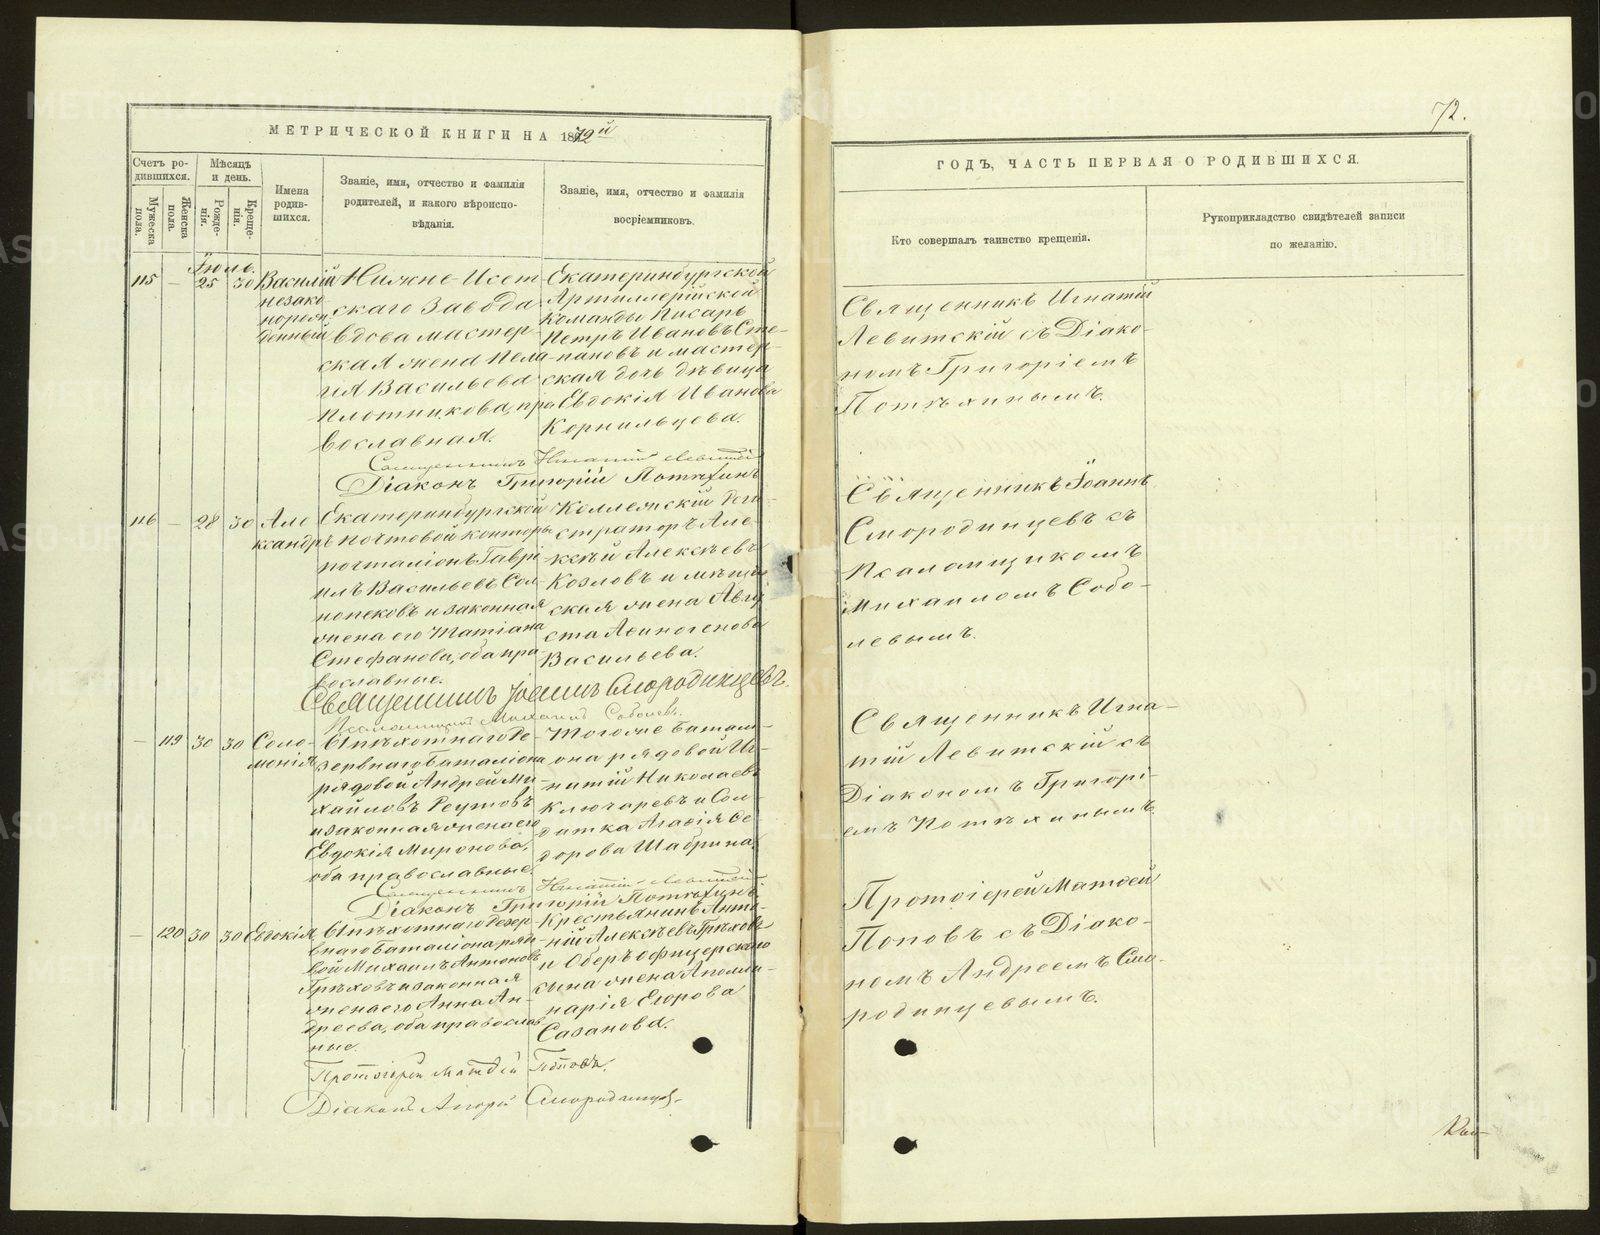 МЕТРИЧЕСКОЙ КНИГИ НА 1872й
Счетъ ро-
дившихся.
Мужеска
пола.
Женска
пола.
Мѣсяцъ
и день.
Рожде-
нія.
Креще-
нія.
Имена
родив-
шихся.
Званіе, имя, отчество и фамилія
родителей, и какого вѣроиспо-
вѣданія.
Званіе, имя, отчество и фамилія
воспріемниковъ.
Іюль.
115 — 25 30
Василій
незако
норож
денный
Нижне-Исет
скаго Завода
вдова мастер-
ская жена Пела
гія Васильева
Плотникова, пра
вославная.
Екатеринбургской
Артиллерійской
Команды Писарь
Петръ Ивановъ Сте-
пановъ и мастер-
ская дочь дѣвица
Евдокія Иванова
Корнильцева.
Священникъ Игнатій Левитскій
Діаконъ Григорій Потѣхинъ
116 — 28 30
Але
ксандръ
Екатеринбургской
почтовой конторы
почталіонъ Гаврі
илъ Васильевъ Сол-
нопековъ и законная
жена его Татіана
Стефанова, оба пра-
вославные.
Коллежскій Реги-
страторъ Але-
ксѣй Алексѣевъ
Козловъ и мѣщан
ская жена Авгу
ста Афиногенова
Васильева.
Священникъ Іоаннъ Смородинцевъ.
Псаломщикъ Михаилъ Соболевъ.
— 119 30 30
Соло-
монія
1 Пѣхотнаго Ре-
зервнаго Баталіона
рядовой Андрей Ми-
хайловъ Реутовъ
и законная жена его
Евдокія Миронова,
оба православные.
Тогоже Баталі-
она рядовой Иг-
натій Николаевъ
Ключаревъ и Сол-
датка Агафія Ѳе
дорова Шабрина.
Священникъ Игнатій Левитскій
Діаконъ Григорій Потѣхинъ
— 120 30 30
Евдокія
1 Пѣхотнаго Резер-
внаго Баталіона рядо
вой Михаилъ Антоновъ
Грѣховъ и законная
жена его Анна Ан-
дреева, оба православ
ные.
Крестьянинъ Анто-
ній Алексѣевъ Грѣховъ
и Оберъ офицерскаго
сына жена Аполли-
нарія Егорова
Сазанова.
Протоіерей Матѳей Поповъ.
Діаконъ Андрей Смородинцевъ
72.
ГОДЪ, ЧАСТЬ ПЕРВАЯ О РОДИВШИХСЯ.
Кто совершалъ таинство крещенія.
Рукоприкладство свидѣтелей записи
по желанію.
Священникъ Игнатій
Левитскій съ Діако-
номъ Григоріемъ
Потѣхинымъ.
Священникъ Іоаннъ
Смородинцевъ съ
Псаломщикомъ
Михаиломъ Собо-
левымъ.
Священникъ Игна-
тій Левитскій съ
Діакономъ Григорі-
емъ Потѣхинымъ.
Протоіерей Матѳей
Поповъ съ Діако-
номъ Андреемъ Смо-
родинцевымъ.
METRIC.UCASO-URAL.RU